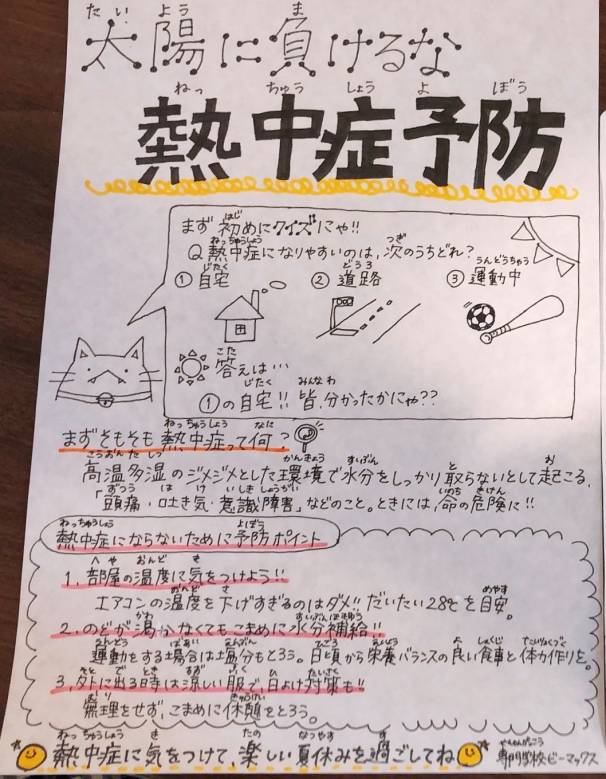 太陽に負けるな
熱中症予防
まず初めにクイズにゃ!!
Q 熱中症になりやすいのは、次のうちどれ?
① 自宅 ② 道路 ③ 運動中
答えは…
①の自宅!! 皆、分かったかにゃ??
まずそもそも熱中症って何?
高温多湿のジメジメとした環境で水分をしっかり取らないとして起こる、
「頭痛・吐き気・意識障害」などのこと。ときには、命の危険に!!
熱中症にならないために予防ポイント
1. 部屋の温度に気をつけよう!!
エアコンの温度を下げすぎるのはダメ!! だいたい28℃を目安。
2. のどが渇かなくてもこまめに水分補給!!
運動をする場合は塩分もとろう。日頃から栄養バランスの良い食事と体力作りを。
3. 外に出る時は涼しい服で、日よけ対策も!!
無理をせず、こまめに休憩をとろう。
熱中症に気をつけて、楽しい夏休みを過ごしてね
専門学校ビーマックス